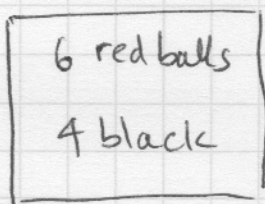 6 red balls
4 black